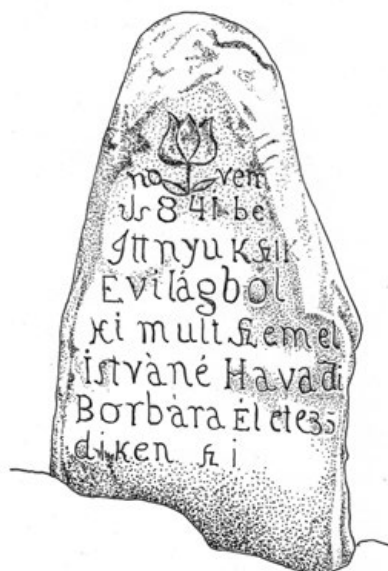 no vem
8 41 be
Ittnyukſzik
E világból
ki mult ſzemel
istvàné Havadi
Borbàra Élete 35
diken ſzi